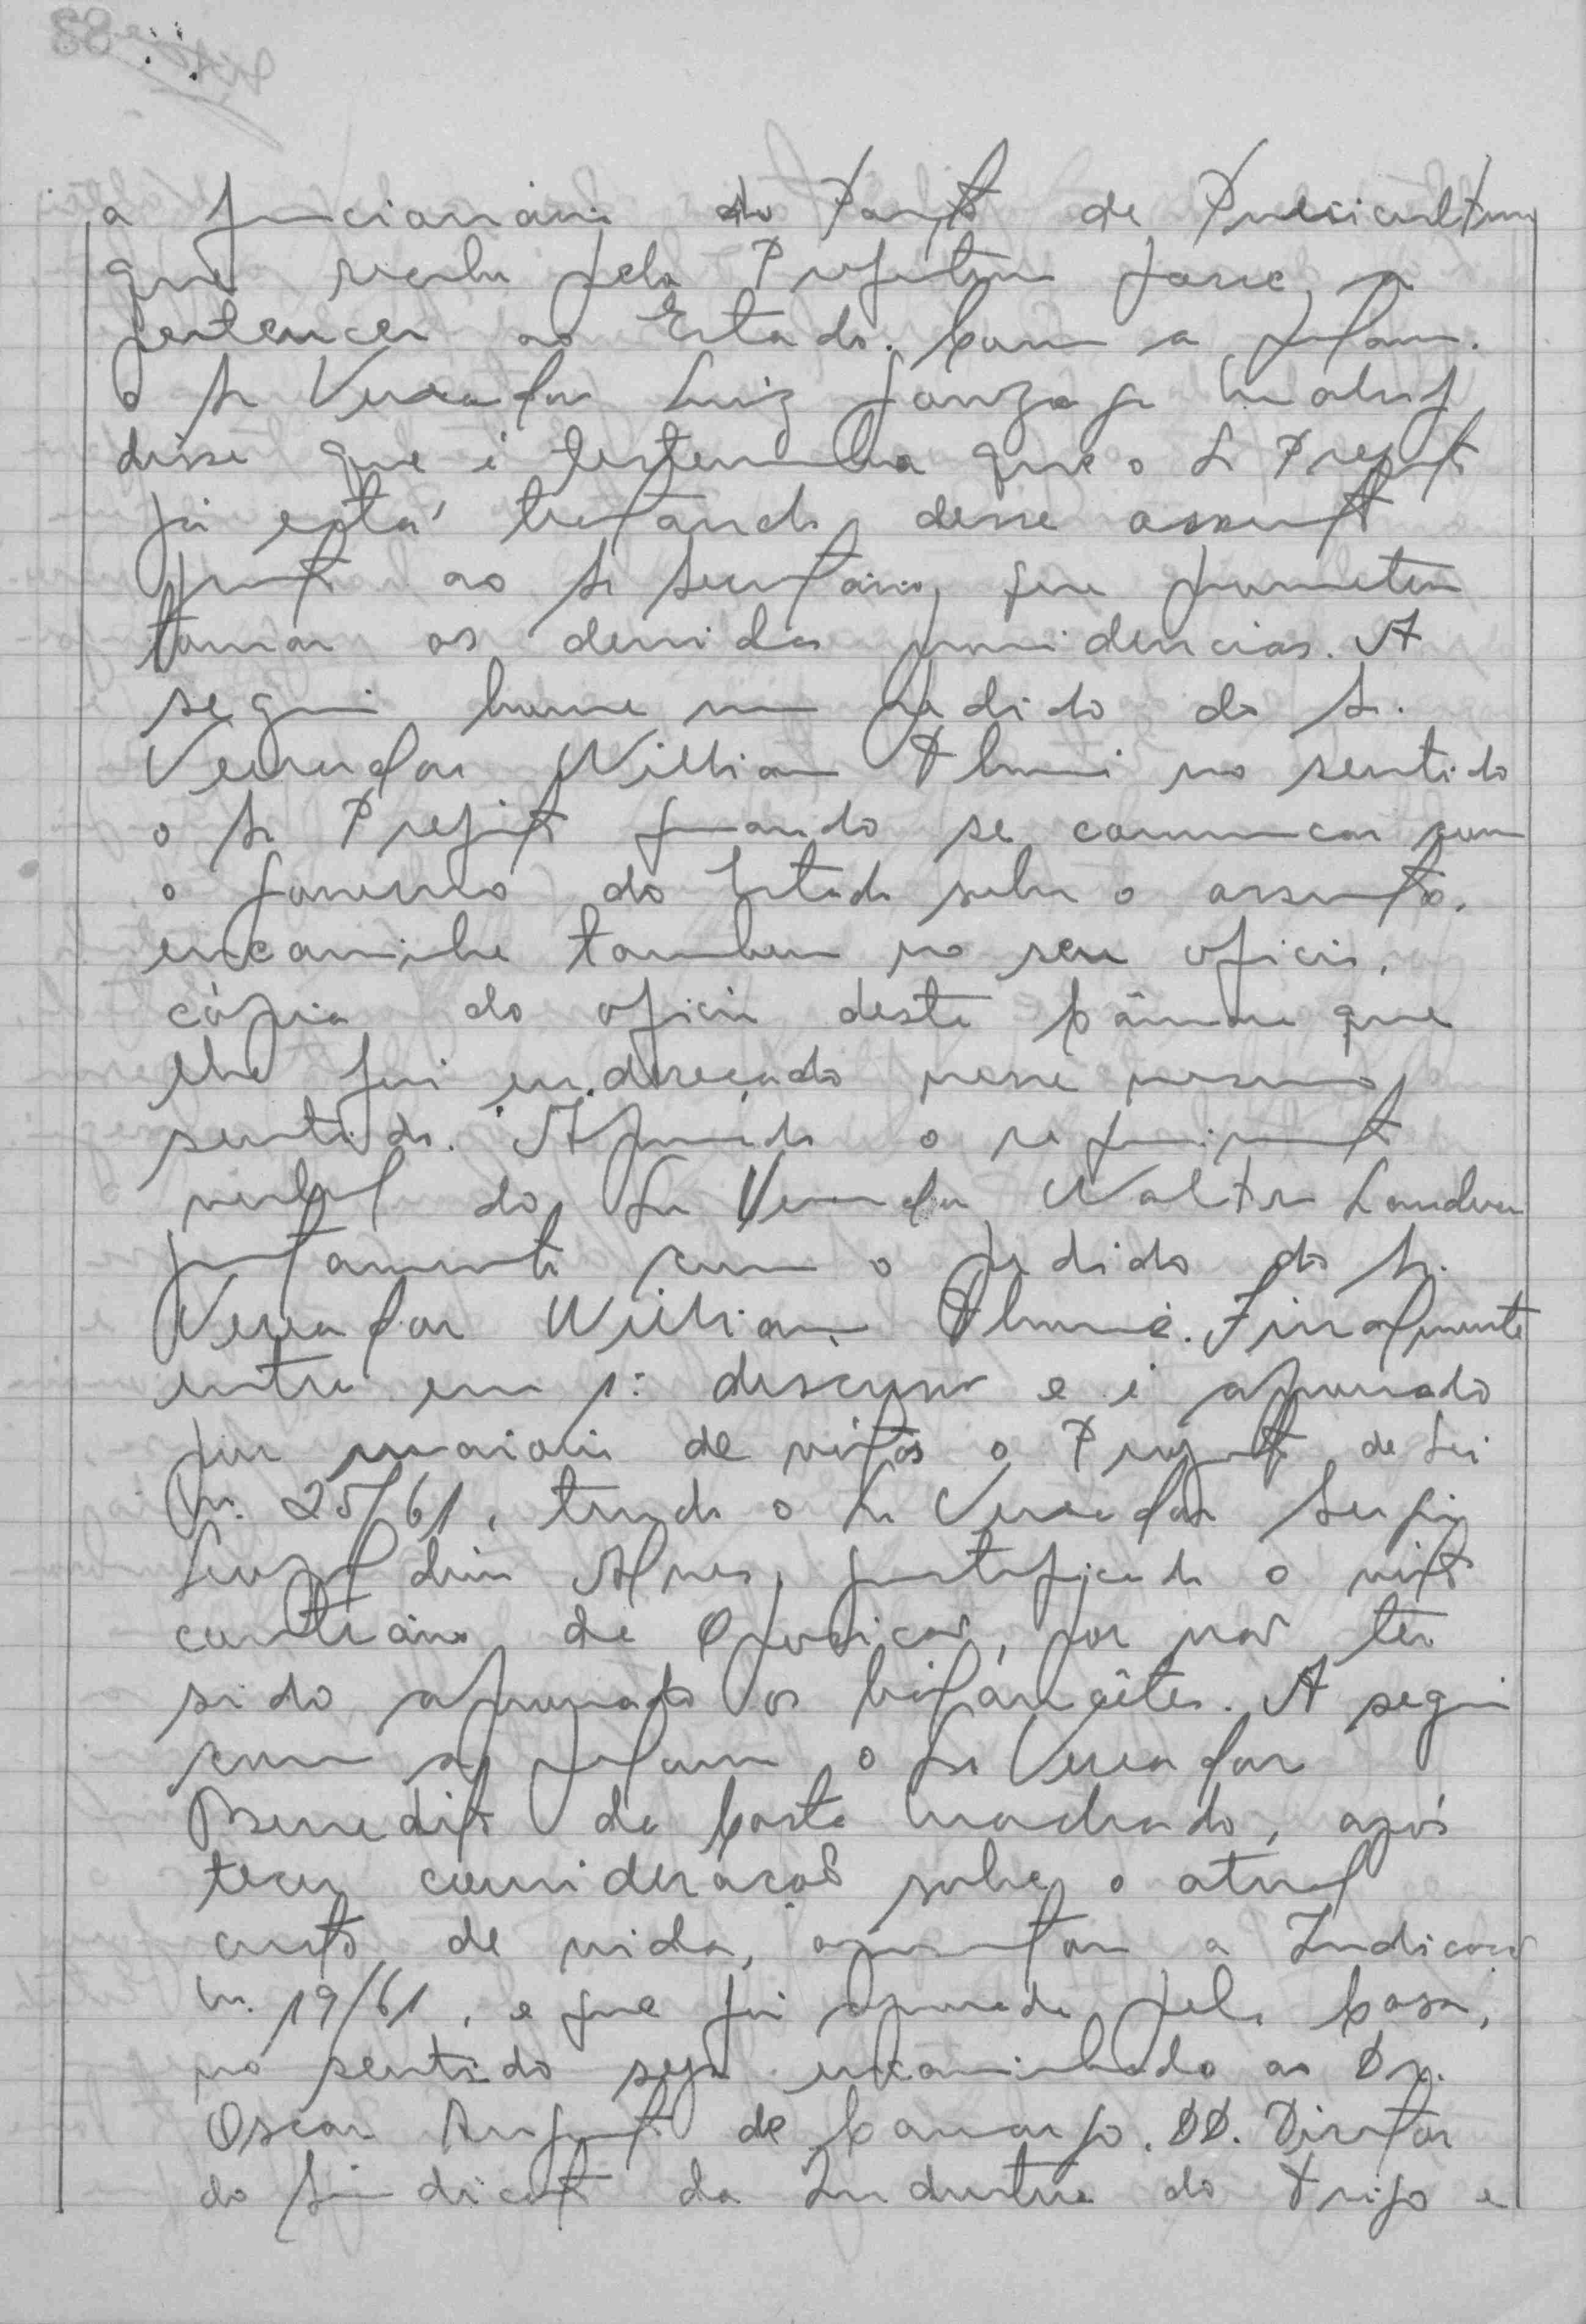 a funcionaria do Posto de Puericultura
que recebe pela Prefeitura passe a
pertencer ao Estado. Com a palavra
o Sr Vereador Luiz Gonzaga Maluf,
disse que é testemunha que o Sr Prefeito
já está tratando desse assunto
junto ao Sr Secretário, que prometeu
tomar as devidas providencias. A
seguir houve um pedido do Sr.
Vereador William no sentido
o Sr Prefeito quando se comunicar com
o Governo do Estado sobre o assunto,
encaminhe tambem no seu oficio,
cópia do oficio desta Câmara que
lhe foi endereçado nesse mesmo
sentido. Aprovado o requerimento
verbal do Sr Vereador Walter
juntamente com o pedido do Sr.
Vereador William Finalmente
entra em 1ª discussão e é aprovado
por maioria de votos o Projeto de Lei
N. 25/61, tendo o Sr Vereador Sergio
Alves, justificado o voto
contrário de Oposição, por não ter
sido aprovado os balancêtes. A seguir
com a palavra o Sr Vereador
Benedito da Costa Machado, após
tecer consideração sobre o atual
custo de vida, apresentou a Indicação
N. 19/61, e que foi aprovada pela Casa,
no sentido seja encaminhado ao Dr.
Oscar Augusto de Camargo. DD. Diretor
do Sindicato da Industria do Trigo e